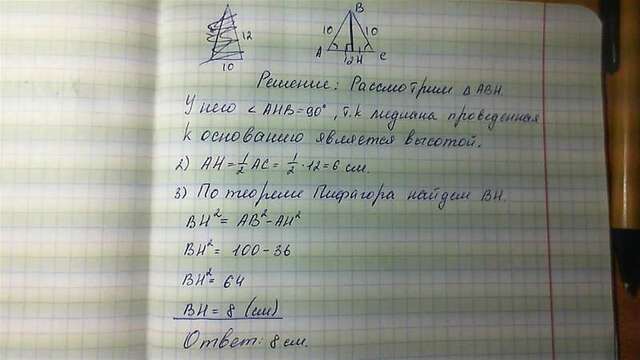 12
10
B
10 10
A 12 H C
Решение: Рассмотрим △ ABH
У него < AHB = 90°, т.к медиана проведенная
к основанию является высотой.
2) AH = 1/2 AC = 1/2 · 12 = 6 см.
3) По теореме Пифагора найдем BH.
BH² = AB² - AH²
BH² = 100 - 36
BH² = 64
BH = 8 (см)
Ответ: 8 см.